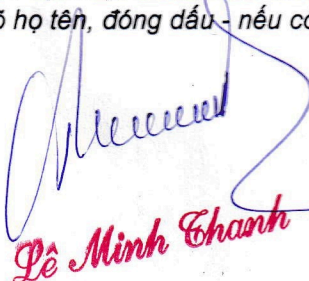 họ tên, đóng dấu - nếu có
Lê Minh Thanh